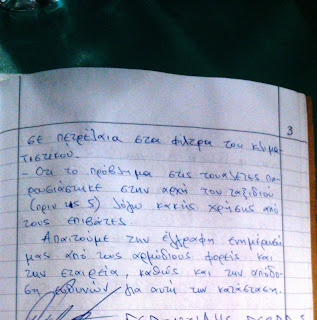 3
σε πετρέλαια στα φίλτρα του κλιμα-
τιστικού.
- Ότι το πρόβλημα στις τουαλέτες πα-
ρουσιάστηκε στην αρχή του ταξιδιού
(πριν τις 5) λόγω κακής χρήσης από
τους επιβάτες.
Απαιτούμε την έγγραφη ενημέρωσή
μας από τους αρμόδιους φορείς και
την εταιρεία, καθώς και την απόδο-
ση ευθυνών για αυτή την κατάσταση.